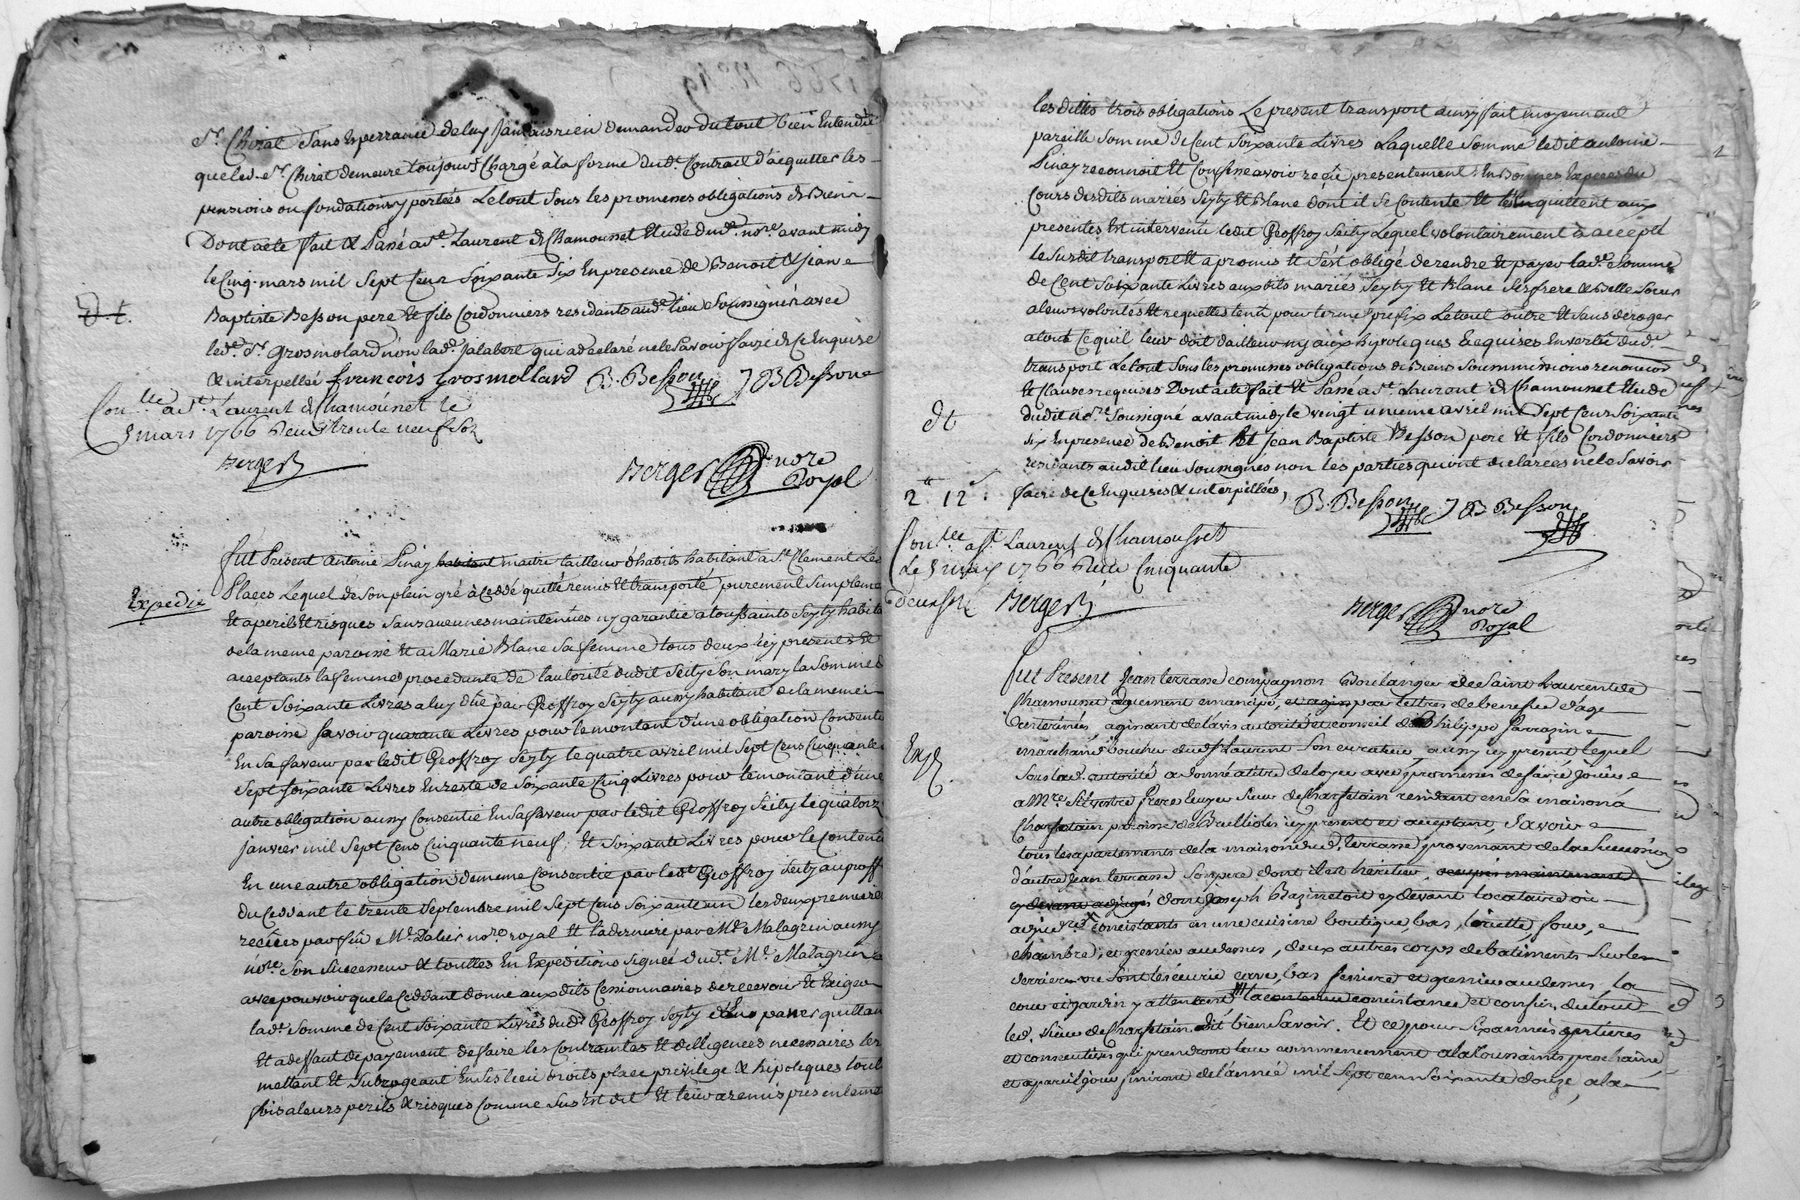 Sr. Chirat Sans Esperrance de luy Jamais rien demander du tout bien Entendu
que led. Sr. Chirat demeure toujours Chargé à la forme dudt. Contrail d'acquitter les
pensions ou fondations y portées Le tout sous les promesses obligations de Biens
Dont acte fait & Passé a St. Laurent de Chamousset Etude dudt. nore. avant midy
le Cinq mars mil Sept Cens Soixante Six En presence de Benoit & Jean
Baptiste Besson pere Et fils Cordonniers residants audt. lieu Soussignés avec
dt.
led. Sr. Grosmolard non lad. Jalabert qui a declaré ne le Savoir faire de Ce Enquise
& interpellée francois Grosmollard B. Besson J B Besson
Conlle a St. Laurent de Chamousset le
5 mars 1766 Reçu trente neuf Sols
Berger
Berger nore Royal
Expedié
Fut Present Antoine Pinay habitant maitre tailleur d'habits habitant a St. Clement Les
Places Lequel de Son plein gré a Cedé quitté remis Et transporté purement Simpleme
Et a perils Et risques Sans aucunes maintenues ny garantie a toussaints Seyty habita
de la meme paroisse Et a Marie Blanc Sa femme tous deux icy presents Et
acceptants la femme procedante de l'autorité dudit Seity Son mary la Somme de
Cent Soixante Livres a luy düe par Geoffroy Seyty aussy habitant de la meme
paroisse Savoir quarante Livres pour le montant d'une obligation Consentie
En Sa faveur par ledit Geoffroy Seyty le quatre avril mil Sept Cens Cinquante
Sept soixante Livres En reste de Soixante Cinq Livres pour le montant d'une
autre obligation aussy Consentie En Sa faveur par ledit Geoffroy Seity le quatorz
janvier mil Sept Cens Cinquante neuf, Et Soixante Livres pour le Contenu
En une autre obligation de meme Consentie par ledt. Geoffroy Seity au proffit
du Cedant le trente Septembre mil Sept Cens Soixante un les deux premieres
recües par feu Me. Dalier nore. royal Et la derniere par Me. Malagrin aussy
nore. Son Successeur & toutes En Expeditions Signée dudt. Me. Malagrin
avec pouvoir que le Ceddant donne aux dits Cessionnaires de recevoir Et Exiger
lad. Somme de Cent Soixante Livres dudt. Geoffroy Seyty d'En passer quittan
Et a deffaut de payement de faire les Contraintes Et dilligences necessaires les
mettant Et Subrogeant En Ses lieu droits place privilege & hipoteques toute
fois a leurs perils & risques Comme Sus Est dit Et leur a remis presenteme
les dittes trois obligations Le present transport aussy fait moyennant
pareille Somme de Cent Soixante Livres Laquelle Somme ledit antoine
Pinay reconnoit Et Confesse avoir reçüe presentement En Bonnes Especes du
Cours desdits mariés Seyty Et Blanc dont il Se Contente Et les En quittent aux
presentes Est intervenu ledit Geoffroy Seity Lequel volontairement a accepté
le Susdit transport Et a promis Et S'est obligé de rendre Et payer lad. Somme
de Cent Soixante Livres auxdits mariés Seyty Et Blanc Ses frere & Belle Soeur
a leurs volontés Et requestes tenu pour terme prefix Le tout outre Et Sans deroger
a tout Ce quil leur doit d'ailleurs ny aux hypoteques acquises En vertu dudt.
transport Le tout Sous les promesses obligations de Biens Soummissions renonciaons
Et Clauses requises Dont acte fait Et Passé a St. Laurent de Chamousset Etude
dt
dudit nore. Soussigné avant midy le vingt unieme avril mil Sept Cens Soixante
Six En presence de Benoit Et Jean Baptiste Besson pere Et fils Cordonniers
residants audit lieu Soussignés non les parties qui ont declarées ne le Savoir
2tt 12s
faire de Ce Enquises & interpellées, B. Besson J B Besson
Conlle a St. Laurent de Chamousset
Le 5 may 1766 Reçu Cinquante
deux Sols Berger
Berger nore Royal
Exp.
Fut Present Jean terrasse compagnon Boulanger de Saint Laurent de
Chamousset duement emancipé, et agissant par lettres de benefice d'age
Enterinées, agissant de l'avis autorité et conseil de Philippe Parrasin
marchand boucher dudt. St Laurent Son curateur aussy icy present lequel
Sous lad. autorité a donné a titre de loyer avec promesse de faire jouir
a Mre. Silvestre ecuyer Sieur de Charfetain residant en sa maison a
Charfetain paroisse de Brullioles icy present et acceptant, Savoir
tous les apartements de la maison dud. terrasse provenant de la Succession
d'autre Jean terrasse Son pere dont il est heritier, occupés maintenant
dont Joseph cy devant locataire ou
consistants en une cuisine boutique, bas, four,
chambre, et grenier au dessus, deux autres corps de batiments Sur les
derrieres ou Sont les ecurie cave, bas feniere et grenier au dessus, la
cour et jardin y attenant la contenue consistance et confins du tout
led. Sieur de Charfetain dit bien Savoir. Et ce pour Six années entieres
et consecutives qui prendront leur commencement a la toussaints prochaine
et a pareil jour finiront de l'année mil Sept cens Soixante douze, a la